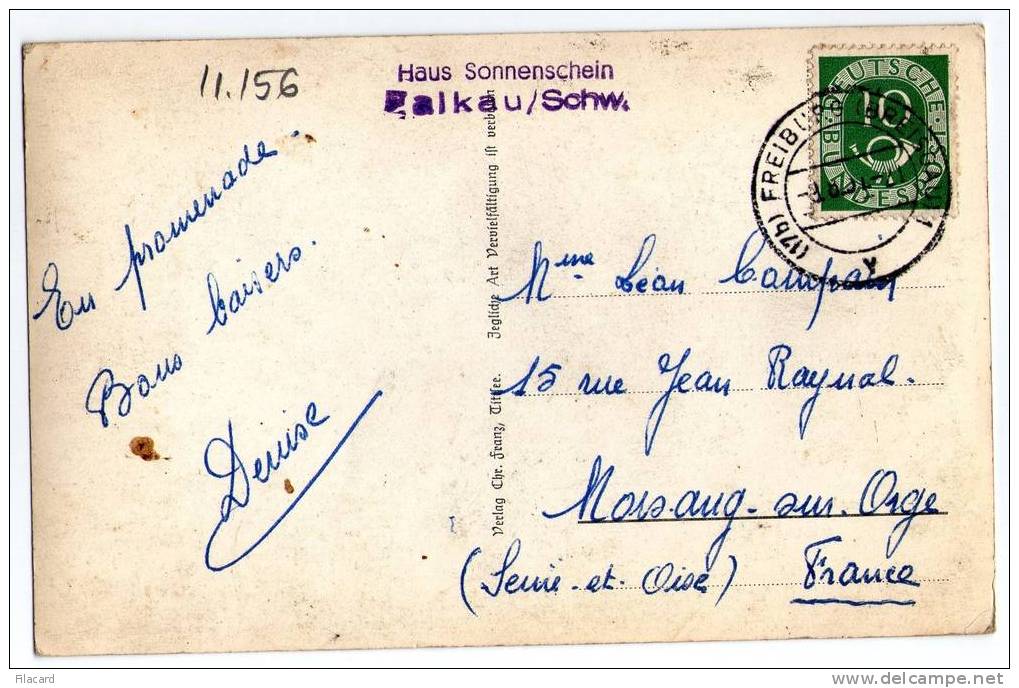 11.156
Haus Sonnenschein
Falkau/Schw.
DEUTSCHE
BUNDESPOST
10
(17b) FREIBURG
En promenade.
Bons baisers.
Denise
Verlag Chr. Franz, Titisee. Jegliche Art Vervielfältigung ist verboten
Mme Léan
15 rue Jean Raynal.
Morsang-sur-Orge
(Seine-et-Oise) France
Filacard
delcampe.net